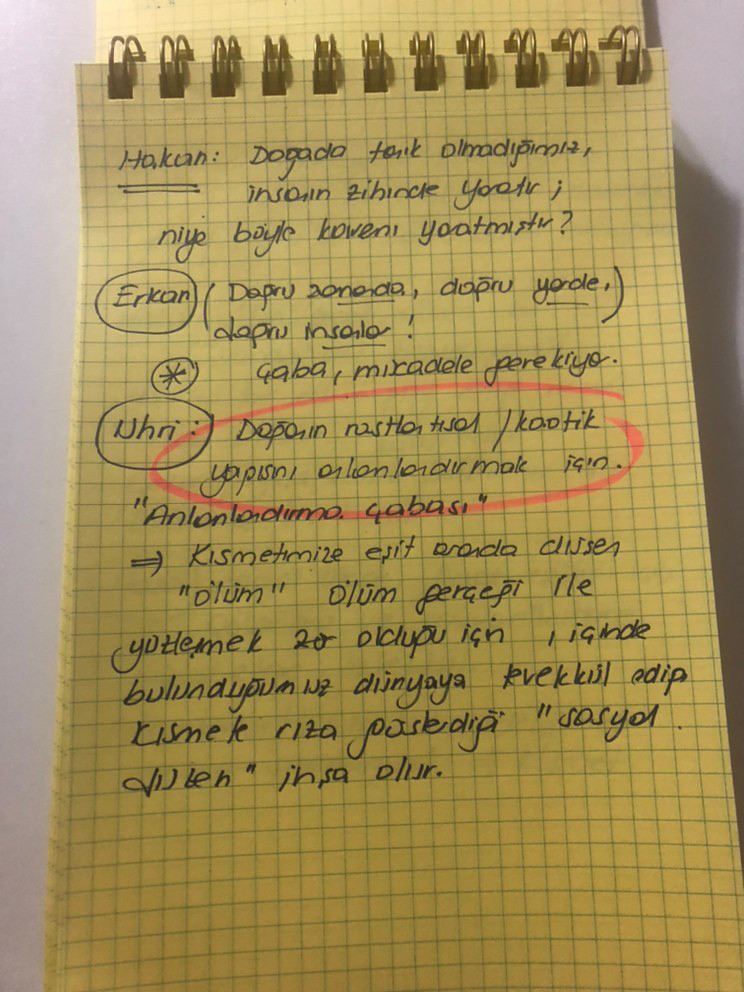 Hakan: Doğada tanık olmadığımız,
insanın zihinde yaratır;
niye böyle kavramı yaratmıştır?
Erkan (Doğru zamanda, doğru yerde,)
doğru insanlar!
* Çaba, mücadele gerekiyor.
Nuri: Doğanın rastlantısal / kaotik
yapısını anlamlandırmak için.
"Anlamlandırma çabası"
⇒ Kısmetimize eşit oranda düşen
"ölüm" ölüm gerçeği ile
yüzleşmek zor olduğu için, içinde
bulunduğumuz dünyaya tevekkül edip
kısmek rıza gösterdiği "sosyal
düzen" inşa olur.